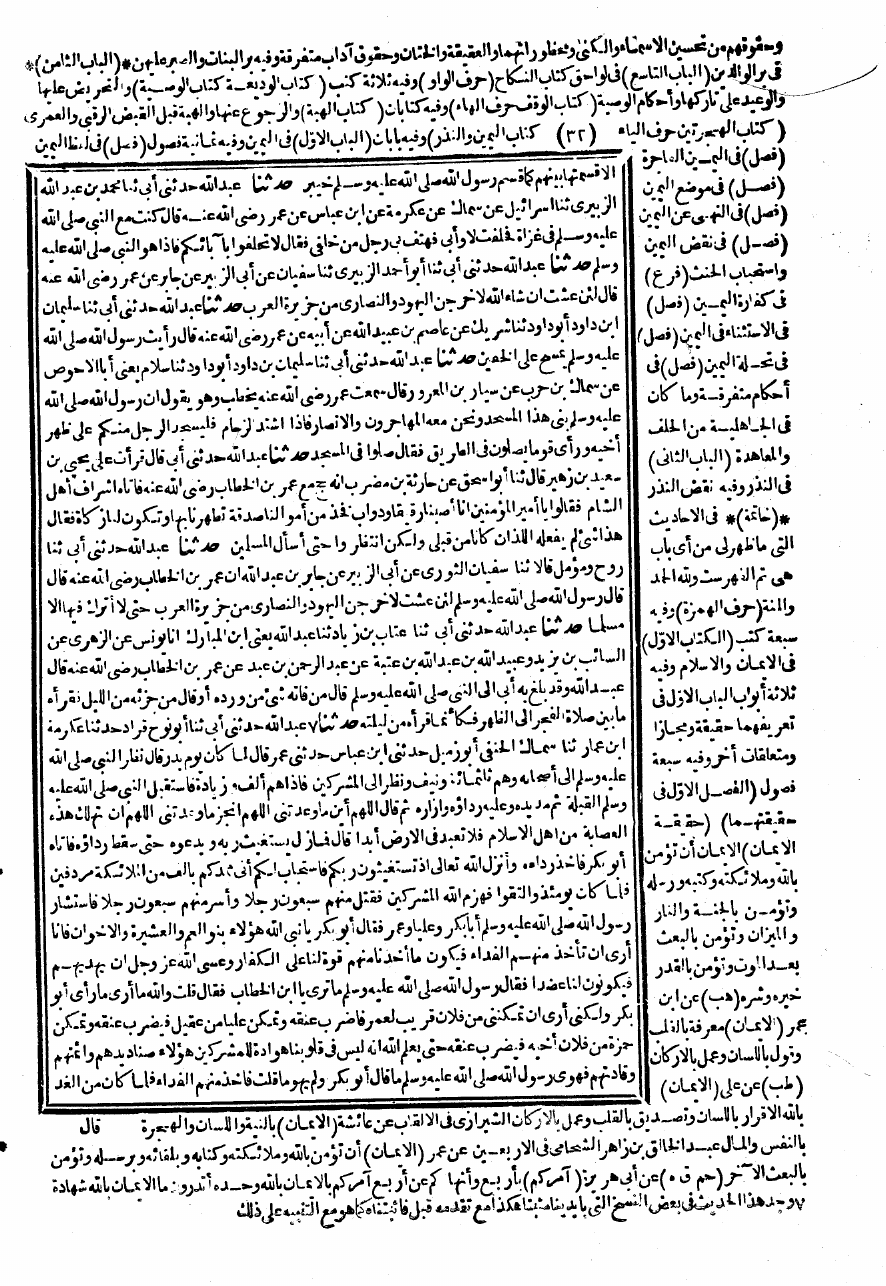 وحقوقهم من تحسين الاسماء والكنى ومحظوراتهما والعقيقة والختان وحقوق آداب متفرقة وفيه بر البنات والصبر عليهن *(الباب الثامن)*
فى بر الوالدين (الباب التاسع) فى لواحق كتاب النكاح (حرف الواو) وفيه ثلاثة كتب (كتاب الوديعة كتاب الوصية) والتحريض عليها
والوعيد على تاركها وأحكام الوصية (كتاب الوقف حرف الهاء) وفيه كتابات (كتاب الهبة) والرجوع عنها والهبة قبل القبض الرقبى والعمرى
(كتاب الهجرتين حرف الياء (٣٢) كتاب اليمين والنذر) وفيه بابات (الباب الاول) فى اليمين وفيه ثمانية فصول (فصل) فى لفظ اليمين
(فصل) فى اليمين الفاجرة
(فصل) فى موضع اليمين
(فصل) فى النهى عن اليمين
(فصل) فى نقض اليمين
واستحباب الحنث (فرع)
فى كفارة اليمين (فصل)
فى الاستثناء فى اليمين (فصل)
فى تحلة اليمين (فصل) فى
أحكام متفرقة وما كان
فى الجاهلية من الحلف
والمعاهدة (الباب الثانى)
فى النذر وفيه نقض النذر
*(خاتمة)* فى الاحاديث
التى ما ظهر لى من أى باب
هى تم الفهرست ولله الحمد
والمنة (حرف الهمزة) وفيه
سبعة كتب (الكتاب الاول)
فى الايمان والاسلام وفيه
ثلاثة أبواب الباب الاول فى
تعريفهما حقيقة ومجازا
ومتعلقات أخر وفيه سبعة
فصول (الفصل الاول فى
حقيقتهما) (حقيقة
الايمان) الايمان أن تؤمن
بالله وملائكته وكتبه ورسله
وتؤمن بالجنة والنار
والميزان وتؤمن بالبعث
بعد الموت وتؤمن بالقدر
خيره وشره (هب) عن ابن
عمر (الايمان) معرفة بالقلب
وقول باللسان وعمل بالاركان
(طب) عن على (الايمان)
الاقسمتها بينهم كما قسم رسول الله صلى الله عليه وسلم خيبر حدثنا عبد الله حدثنى أبى ثنا محمد بن عبد الله
الزبيرى ثنا اسرائيل عن سماك عن عكرمة عن ابن عباس عن عمر رضى الله عنه قال كنت مع النبى صلى الله
عليه وسلم فى غزاة فحلفت لا وأبى فهتف بى رجل من خلفى فقال لا تحلفوا بآبائكم فاذا هو النبى صلى الله عليه
وسلم حدثنا عبد الله حدثنى أبى ثنا أبو أحمد الزبيرى ثنا سفيان عن أبى الزبير عن جابر عن عمر رضى الله عنه
قال لئن عشت ان شاء الله لاخرجن اليهود والنصارى من جزيرة العرب حدثنا عبد الله حدثنى أبى ثنا سليمان
ابن داود أبو داود ثنا شريك عن عاصم بن عبيد الله عن أبيه عن عمر رضى الله عنه قال رأيت رسول الله صلى الله
عليه وسلم يمسح على الخفين حدثنا عبد الله حدثنى أبى ثنا سليمان بن داود أبو داود ثنا سلام يعنى أبا الاحوص
عن سماك بن حرب عن سيار بن المعرور قال سمعت عمر رضى الله عنه يخطب وهو يقول ان رسول الله صلى الله
عليه وسلم بنى هذا المسجد ونحن معه المهاجرون والانصار فاذا اشتد الزحام فليسجد الرجل منكم على ظهر
أخيه ورأى قوما يصلون فى الطريق فقال صلوا فى المسجد حدثنا عبد الله حدثنى أبى قال قرأت على يحيى بن
سعيد بن زهير قال ثنا أبو اسحق عن حارثة بن مضرب انه حج مع عمر بن الخطاب رضى الله عنه فاتاه اشراف أهل
الشام فقالوا يا أمير المؤمنين انا أصبنا رقيقا ودواب فخذ من أموالنا صدقة تطهرنا بها وتكون لنا زكاة فقال
هذا شئ لم يفعله اللذان كانا من قبلى ولكن انتظر واحتى أسأل المسلمين حدثنا عبد الله حدثنى أبى ثنا
روح ومؤمل قالا ثنا سفيان الثورى عن أبى الزبير عن جابر بن عبد الله ان عمر بن الخطاب رضى الله عنه قال
قال رسول الله صلى الله عليه وسلم لئن عشت لاخرجن اليهود والنصارى من جزيرة العرب حتى لا أترك فيها الا
مسلما حدثنا عبد الله حدثنى أبى ثنا عتاب بن زياد ثنا عبد الله يعنى ابن المبارك انا يونس عن الزهرى عن
السائب بن يزيد وعبيد الله بن عبد الله بن عتبة عن عبد الرحمن بن عبد عن عمر بن الخطاب رضى الله عنه قال
عبد الله وقد بلغ به أبى الى النبى صلى الله عليه وسلم قال من فاته شئ من ورده أو قال من جزئه من الليل فقرأه
ما بين صلاة الفجر الى الظهر فكأنما قرأه من ليلته حدثنا ٧ عبد الله حدثنى أبى ثنا أبو نوح قراد حدثنا عكرمة
ابن عمار ثنا سماك الحنفى أبو زميل حدثنى ابن عباس حدثنى عمر قال لما كان يوم بدر قال نظر النبى صلى الله
عليه وسلم الى أصحابه وهم ثلثمائة ونيف ونظر الى المشركين فاذا هم ألف وزيادة فاستقبل النبى صلى الله عليه
وسلم القبلة ثم مد يديه وعليه رداؤه وازاره ثم قال اللهم أين ما وعدتنى اللهم انجز ما وعدتنى اللهم ان تهلك هذه
العصابة من اهل الاسلام فلا تعبد فى الارض أبدا قال فما زال يستغيث ربه ويدعوه حتى سقط رداؤه فاتاه
أبو بكر فاخذ رداءه وأنزل الله تعالى اذ تستغيثون ربكم فاستجاب لكم أنى ممدكم بالف من الملائكة مردفين
فلما كان يومئذ والتقوا فهزم الله المشركين فقتل منهم سبعون رجلا وأسر منهم سبعون رجلا فاستشار
رسول الله صلى الله عليه وسلم أبا بكر وعليا وعمر فقال أبو بكر يا نبى الله هؤلاء بنو العم والعشيرة والاخوان فانا
أرى ان تأخذ منهم الفداء فيكون ما أخذنا منهم قوة لنا على الكفار وعسى الله عز وجل ان يهديهم
فيكونون لنا عضدا فقال رسول الله صلى الله عليه وسلم ما ترى يا ابن الخطاب فقال قلت والله ما أرى ما رأى أبو
بكر ولكنى أرى ان تمكننى من فلان قريب لعمر فاضرب عنقه وتمكن عليا من عقيل فيضرب عنقه وتمكن
حمزة من فلان أخيه فيضرب عنقه حتى يعلم الله انه ليس فى قلوبنا هوادة للمشركين هؤلاء صناديدهم وائمتهم
وقادتهم فهوى رسول الله صلى الله عليه وسلم ما قال أبو بكر ولم يهو ما قلت فاخذ منهم الفداء فلما كان من الغد
بالله الاقرار باللسان وتصديق بالقلب وعمل بالاركان الشيرازى فى الالقاب عن عائشة (الايمان) بالنية واللسان والهجرة قال
بالنفس والمال عبد الخالق بن زاهر الشحامى فى الاربعين عن عمر (الايمان) أن تؤمن بالله وملائكته وكتابه وبلقائه وبرسله وتؤمن
بالبعث الآخر (حم ق ه) عن أبى هريرة (آمركم) بأربع وأنهاكم عن أربع آمركم بالايمان بالله وحده أتدرون ما الايمان بالله شهادة
٧ وجد هذا الحديث فى بعض النسخ التى بايدينا مثبتا هكذا مع تقدمه قبل فاثبتناه كما هو مع التنبيه على ذلك